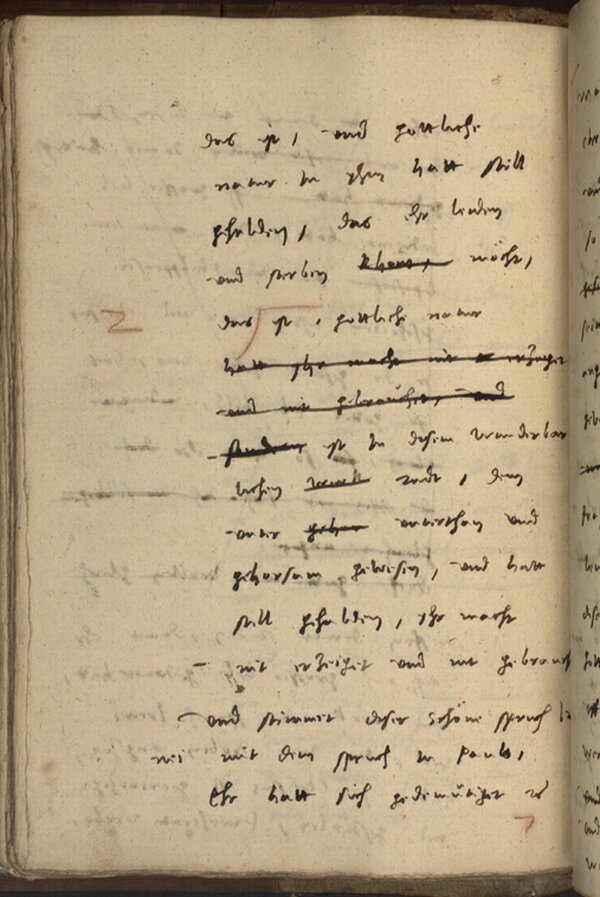 das ist, und gottliche
natur in yhm hatt still
gehalden, das ehr leiden
und sterben mocht,
das ist, gottliche natur
hatt yhr macht nit erzeiget
und nit gebrauchet, und
ist in disem wunderbar
lichen werck radt, dem
vater unterthan und
gehorsam gewesen, und hatt
still gehalden, yhr macht
nit erzeiget und nit gebraucht
und stimmet diser schöne spruch
nei mit dem spruch in Paulo,
Ehr hatt sich gedemütiget